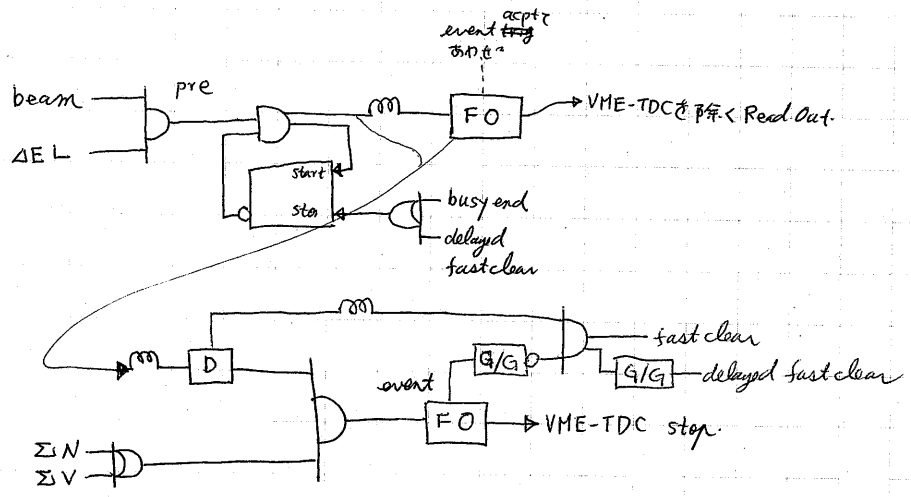 acptで
event trig
あわせ
beam
pre
ΔEL
FO
VME-TDCを除くRead Out.
start
stop
busy end
delayed
fast clear
D
fast clear
G/G
G/G
delayed fast clear
event
FO
VME-TDC stop.
ΣN
ΣV